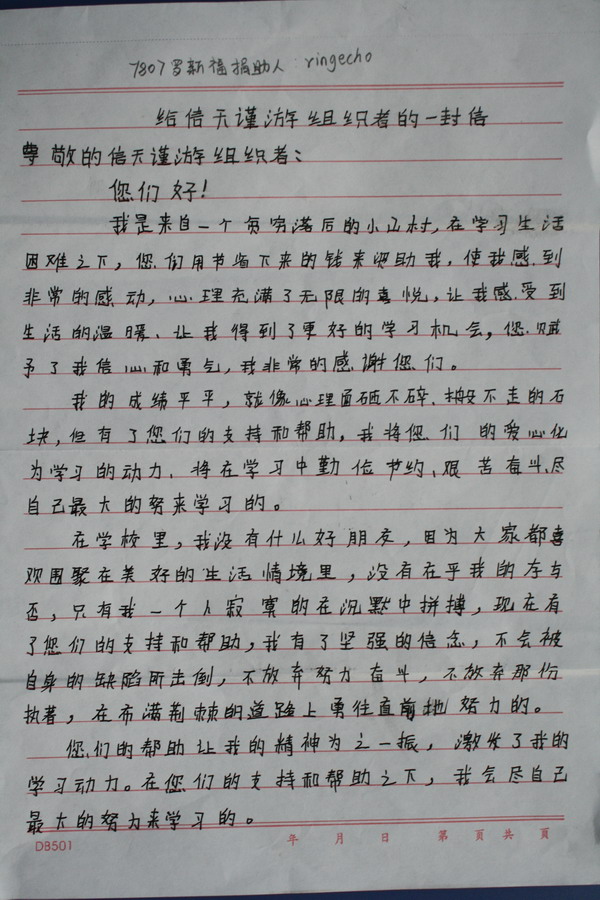 7807罗新福捐助人：ringecho
给信天谨游组织者的一封信
尊敬的信天谨游组织者：
您们好！
我是来自一个贫穷落后的小山村，在学习生活
困难之下，您们用节省下来的钱来资助我，使我感到
非常的感动，心理充满了无限的喜悦，让我感受到
生活的温暖、让我得到了更好的学习机会，您赋
予了我信心和勇气，我非常的感谢您们。
我的成绩平平，就像心理面砸不碎、搬不走的石
块，但有了您们的支持和帮助，我将您们的爱心化
为学习的动力、将在学习中勤俭节约、艰苦奋斗、尽
自己最大的努来学习的。
在学校里，我没有什么好朋友，因为大家都喜
观围聚在美好的生活情境里，没有在乎我的存与
否，只有我一个人寂寞的在沉默中拼搏，现在有
了您们的支持和帮助，我有了坚强的信念，不会被
自身的缺陷所击倒，不放弃努力奋斗，不放弃那份
执著，在布满荆棘的道路上勇往直前地努力的。
您们的帮助让我的精神为之一振，激发了我的
学习动力。在您们的支持和帮助之下，我会尽自己
最大的努为来学习的。
DB501 年 月 日 第 页 共 頁